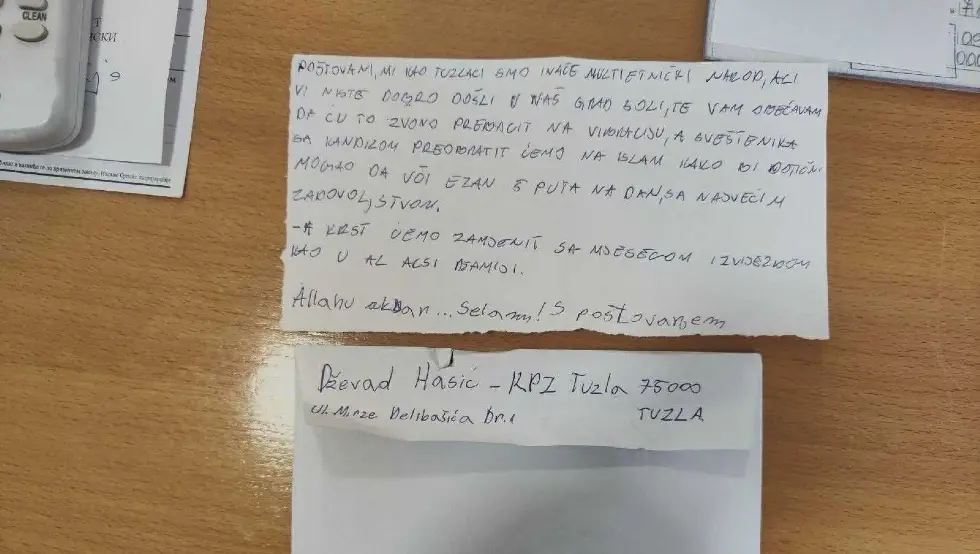 CLEAN
POŠTOVANI, MI KAO TUZLACI SMO INAČE MULTIETNIČKI NAROD, ALI
VI NISTE DOBRO DOŠLI U NAŠ GRAD SOLI, TE VAM OBEĆAVAM
DA ĆU TO ZVONO PREBACIT NA VIBRACIJU, A SVEŠTENIKA
SA KANDILOM PREOBRATIT ĆEMO NA ISLAM KAKO BI DOTIČNI
MOGAO DA UČI EZAN 5 PUTA NA DAN, SA NAJVEĆIM
ZADOVOLJSTVOM.
-A KRST ĆEMO ZAMJENIT SA MJESECOM I ZVIJEZDOM
KAO U AL AKSI DŽAMIJI.
Allahu akbar... Selam! S poštovanjem
Dževad Hasić - KPZ Tuzla 75000
Ul. Mirze Delibašića Br.1 TUZLA